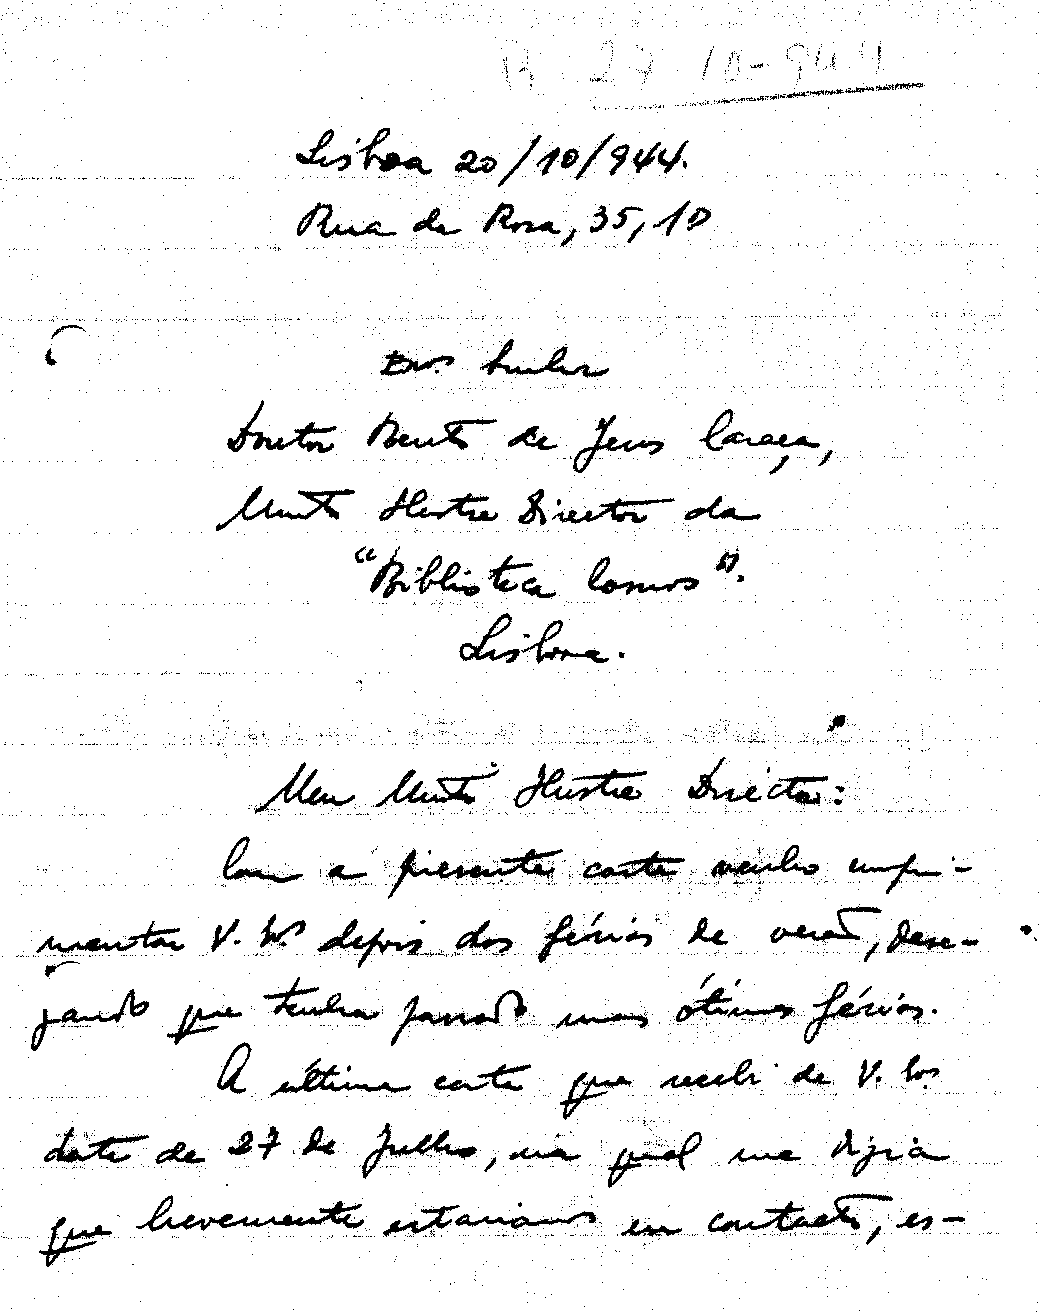 R 27 10-944
Lisboa 20/10/944.
Rua da Rosa, 35, 1º
Exmº Senhor
Doutor Bento de Jesus Caraça,
Muito Ilustre Director da
"Biblioteca Cosmos".
Lisboa.
Meu Muito Ilustre Director:
Com a presente carta venho cumpri-
mentar V. Exª depois das férias de verão, dese-
jando que tenha passado umas ótimas férias.
A última carta que recebi de V. Exª
data de 27 de Julho, na qual me dizia
que brevemente estariamos em contacto, es-